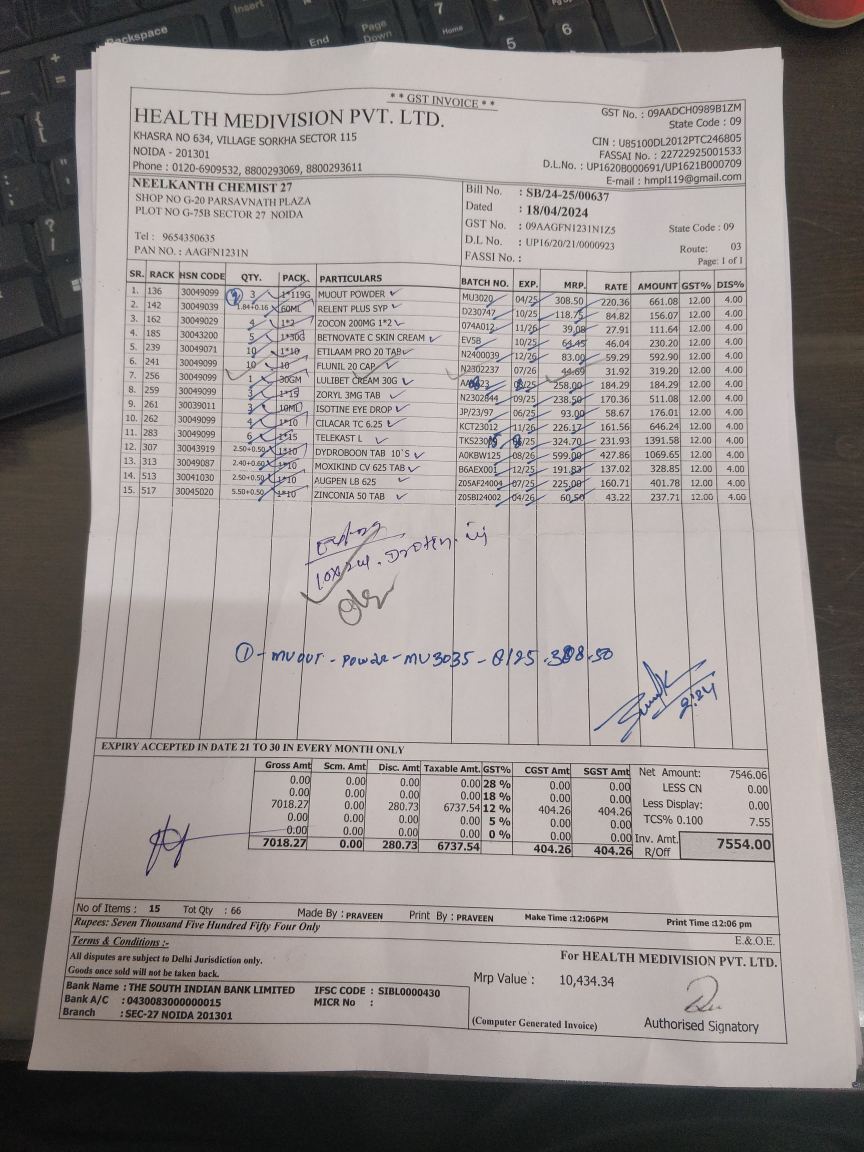 Backspace
PgUp
End
Page Down
7
Home
5
6
?
/
* * GST INVOICE * *
HEALTH MEDIVISION PVT. LTD.
KHASRA NO 634, VILLAGE SORKHA SECTOR 115
NOIDA - 201301
Phone : 0120-6909532, 8800293069, 8800293611
GST No. : 09AADCH0989B1ZM
State Code : 09
CIN : U85100DL2012PTC246805
FASSAI No. : 22722925001533
D.L.No. : UP1620B000691/UP1621B000709
E-mail : hmpl119@gmail.com
NEELKANTH CHEMIST 27
SHOP NO G-20 PARSAVNATH PLAZA
PLOT NO G-75B SECTOR 27 NOIDA
Tel : 9654350635
PAN NO. : AAGFN1231N
Bill No. : SB/24-25/00637
Dated : 18/04/2024
GST No. : 09AAGFN1231N1Z5 State Code : 09
D.L No. : UP16/20/21/0000923
Route: 03
FASSI No. : Page: 1 of 1
SR. RACK HSN CODE QTY. PACK. PARTICULARS BATCH NO. EXP. MRP. RATE AMOUNT GST% DIS%
1. 136 30049099 3 1*119G MUOUT POWDER MU3020 04/25 308.50 220.36 661.08 12.00 4.00
2. 142 30049039 1.84+0.16 60ML RELENT PLUS SYP D230747 10/25 118.75 84.82 156.07 12.00 4.00
3. 162 30049029 4 1*2 ZOCON 200MG 1*2 074A012 11/26 39.08 27.91 111.64 12.00 4.00
4. 185 30043200 5 1*30G BETNOVATE C SKIN CREAM EV5B 10/25 64.45 46.04 230.20 12.00 4.00
5. 239 30049071 10 1*10 ETILAAM PRO 20 TAB N2400039 12/26 83.00 59.29 592.90 12.00 4.00
6. 241 30049099 10 10 FLUNIL 20 CAP N2302237 07/26 44.69 31.92 319.20 12.00 4.00
7. 256 30049099 1 30GM LULIBET CREAM 30G 258.00 184.29 184.29 12.00 4.00
8. 259 30049099 3 1*15 ZORYL 3MG TAB N2302844 09/25 238.50 170.36 511.08 12.00 4.00
9. 261 30039011 3 10ML ISOTINE EYE DROP JP/23/97 06/25 93.00 58.67 176.01 12.00 4.00
10. 262 30049099 4 1*10 CILACAR TC 6.25 KCT23012 11/26 226.17 161.56 646.24 12.00 4.00
11. 283 30049099 6 1*15 TELEKAST L 324.70 231.93 1391.58 12.00 4.00
12. 307 30043919 2.50+0.50 1*10 DYDROBOON TAB 10`S A0KBW125 08/26 599.00 427.86 1069.65 12.00 4.00
13. 313 30049087 2.40+0.60 1*10 MOXIKIND CV 625 TAB B6AEX001 12/25 191.83 137.02 328.85 12.00 4.00
14. 513 30041030 2.50+0.50 1*10 AUGPEN LB 625 Z05AF24004 07/25 225.00 160.71 401.78 12.00 4.00
15. 517 30045020 5.50+0.50 1*10 ZINCONIA 50 TAB Z05BI24002 04/26 60.50 43.22 237.71 12.00 4.00
① - MUOUT - Powde - MU3035 -
EXPIRY ACCEPTED IN DATE 21 TO 30 IN EVERY MONTH ONLY
Gross Amt Scm. Amt Disc. Amt Taxable Amt. GST% CGST Amt SGST Amt
0.00 0.00 0.00 0.00 28 % 0.00 0.00
0.00 0.00 0.00 0.00 18 % 0.00 0.00
7018.27 0.00 280.73 6737.54 12 % 404.26 404.26
0.00 0.00 0.00 0.00 5 % 0.00 0.00
0.00 0.00 0.00 0.00 0 % 0.00 0.00
7018.27 0.00 280.73 6737.54 404.26 404.26
Net Amount: 7546.06
LESS CN 0.00
Less Display: 0.00
TCS% 0.100 7.55
Inv. Amt. 7554.00
R/Off
No of Items : 15 Tot Qty : 66 Made By : PRAVEEN Print By : PRAVEEN Make Time :12:06PM Print Time :12:06 pm
Rupees: Seven Thousand Five Hundred Fifty Four Only
E.& O.E.
Terms & Conditions :-
All disputes are subject to Delhi Jurisdiction only.
Goods once sold will not be taken back.
Bank Name : THE SOUTH INDIAN BANK LIMITED IFSC CODE : SIBL0000430
Bank A/C : 0430083000000015 MICR No :
Branch : SEC-27 NOIDA 201301
For HEALTH MEDIVISION PVT. LTD.
Mrp Value : 10,434.34
(Computer Generated Invoice)
Authorised Signatory